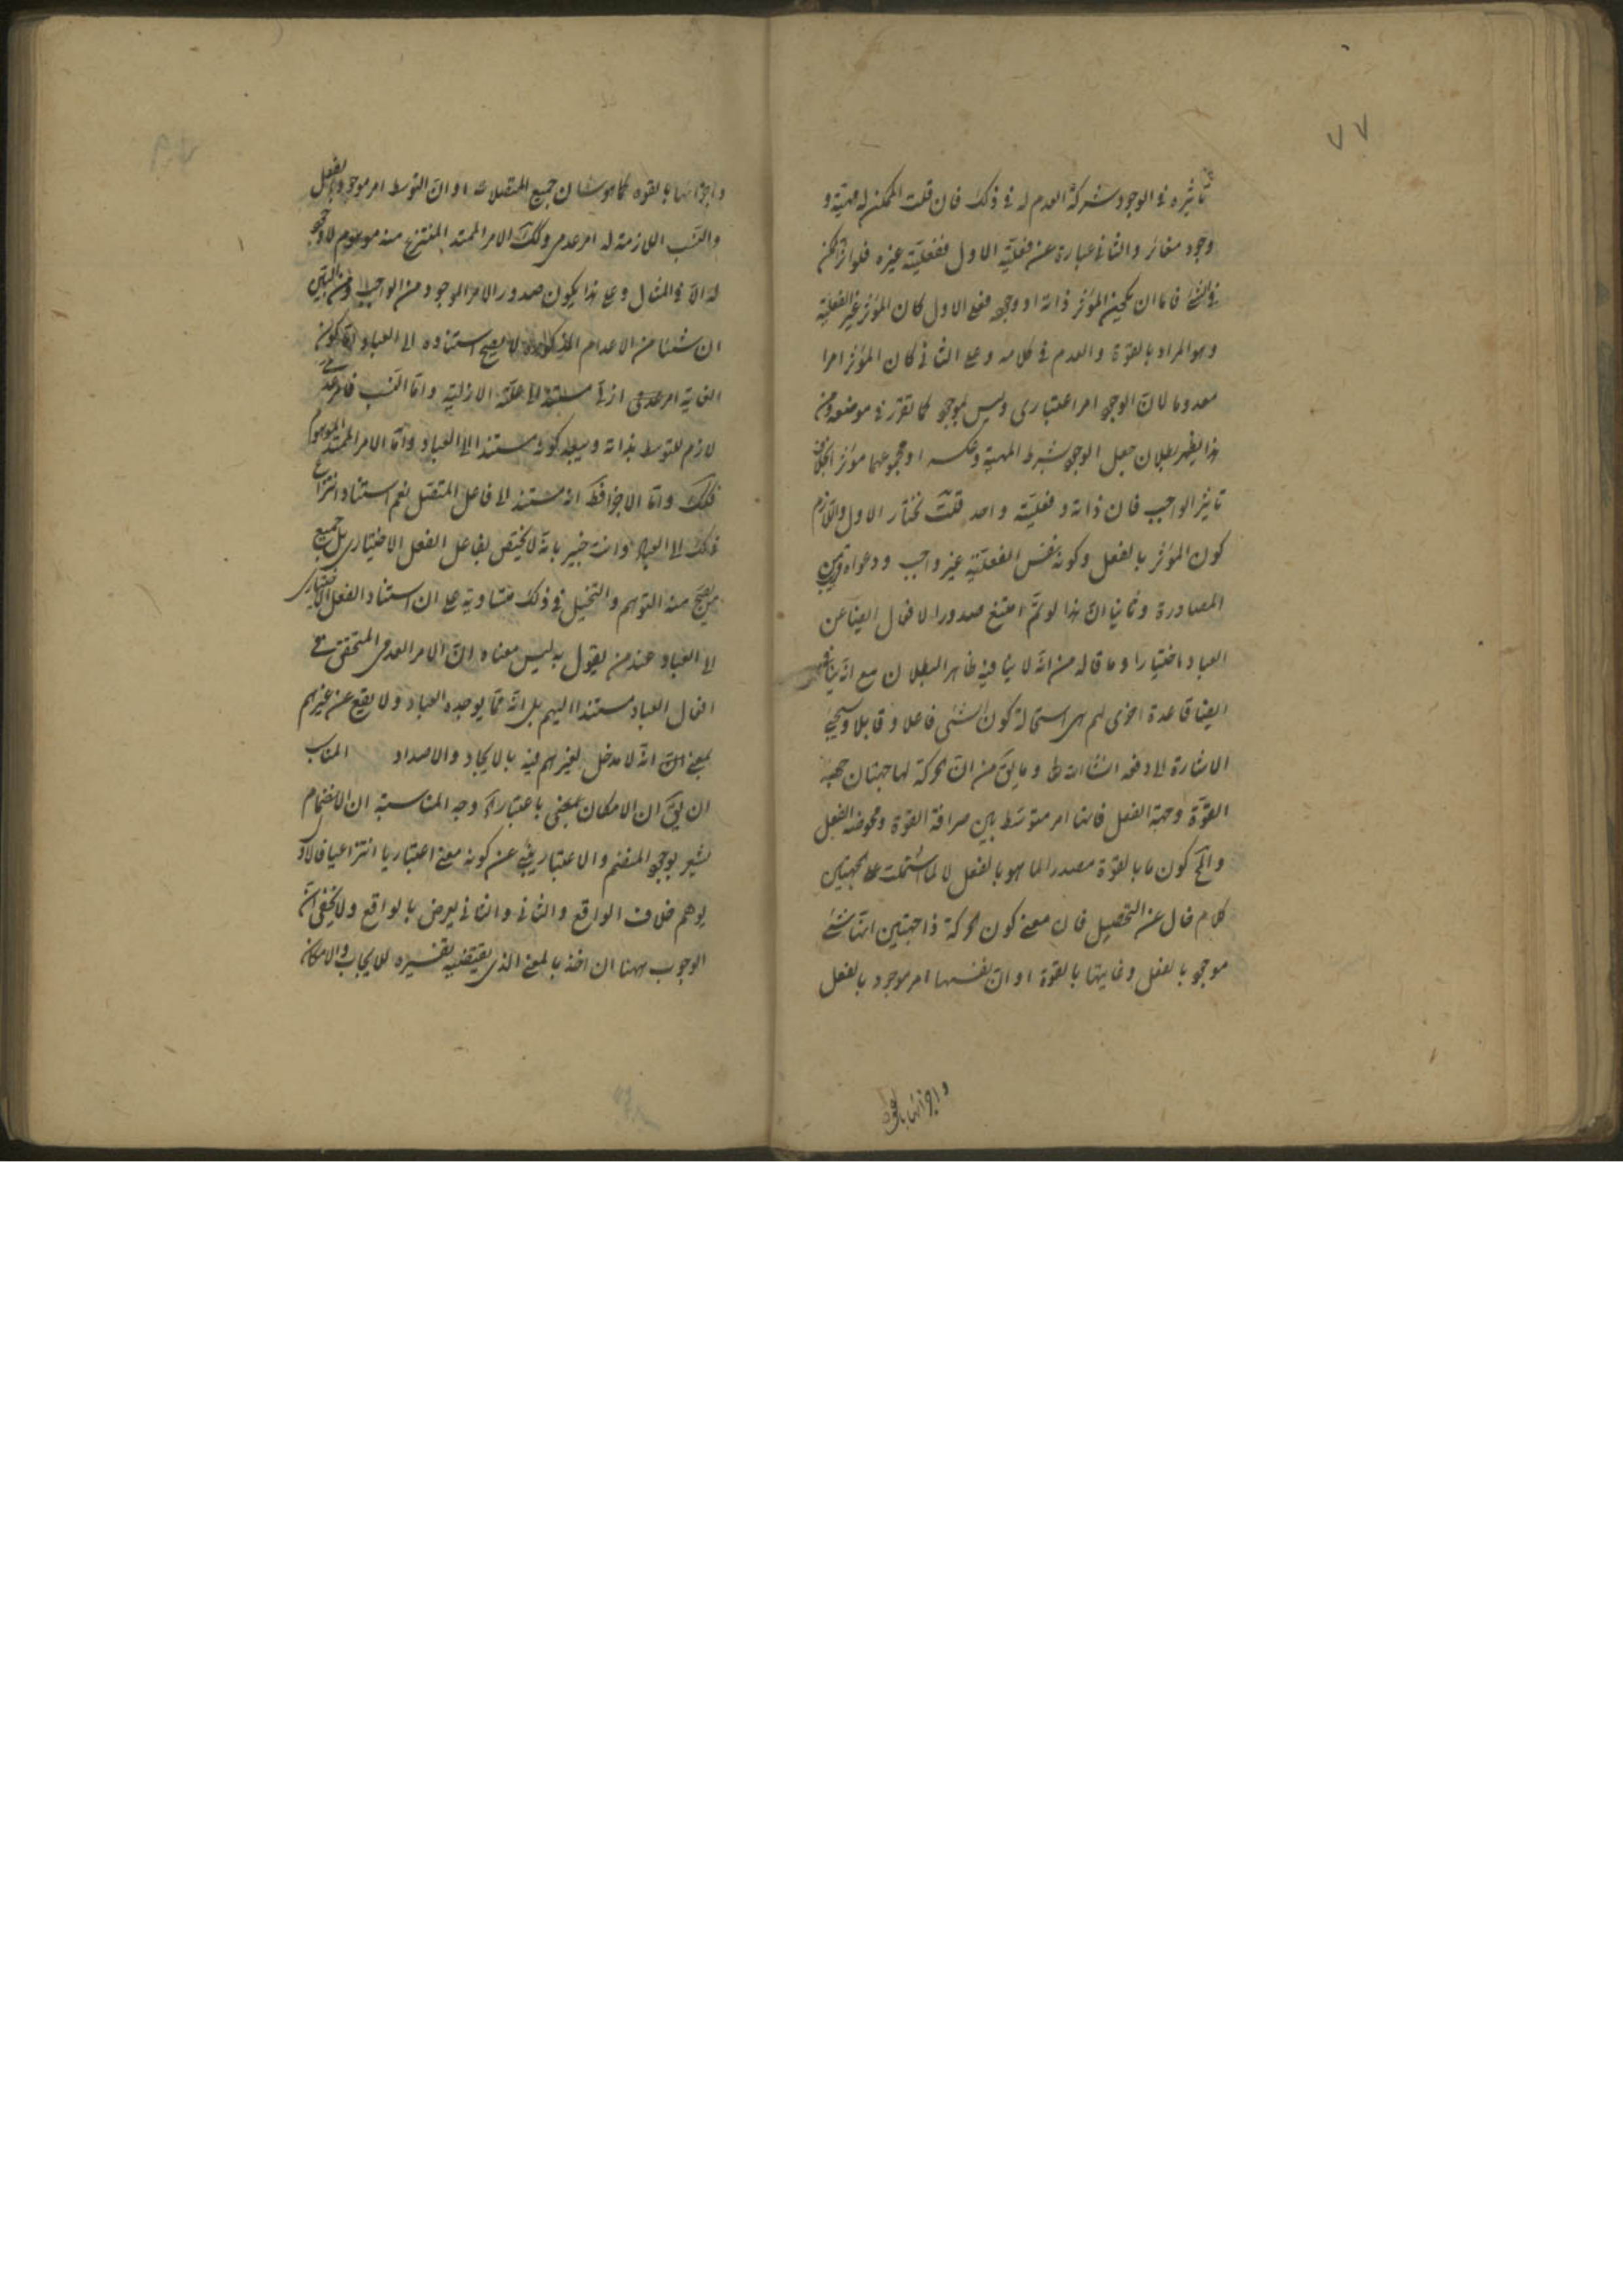 ٧٧
تاثيره فى الوجود شركة العدم له فى ذلك فان قلت الممكن له مهيّة و
وجود مغائر والثانى عبارة عن فعليّة الاول ففعليّته غيره فلو اثّر الممكن
فى الشئ فاما ان يكون المؤثر ذاته او وجوده فعلى الاول كان المؤثر غير الفعليّة
وهو المراد بالقوة والعدم فى كلامه وعلى الثانى كان المؤثر امرا
معدوما لان الوجود امر اعتبارى وليس بموجود كما تقرّر فى موضعه ومن
هذا يظهر بطلان جعل الوجود بشرط المهية وعكسه او مجموعهما مؤثرا بخلاف
تاثير الواجب فان ذاته وفعليّته واحد قلت نختار الاول واللازم
كون المؤثر بالفعل وكونه نفس الفعليّة غير واجب ودعواه قريب من
المصادرة وثانيا انّ هذا لو تمّ امتنع صدور الافعال ايضا عن
العباد اختيارا وما قاله من انّه لا ينافيه ظاهر البطلان مع انّه ينافى
ايضا قاعدة اخرى لهم هى استحالة كون الشئ فاعلا وقابلا وسيجئ
الاشارة الى دفعه انشاء الله تعالى وما يقال من انّ الحركة لها جهتان جهة
القوّة وجهة الفعل فانها امر متوسّط بين صرافة القوة ومحوضة الفعل
والمحال كون ما بالقوة مصدرا لما هو بالفعل لا لما اشتملت على الجهتين
كلام خال عن التحصيل فان معنى كون الحركة ذا جهتين انّها شئ
موجود بالفعل وغايتها بالقوة او انّ نفسها امر موجود بالفعل
واجزائها بالقوة
واجزائها بالقوه كما هو شان جميع المتصلات او انّ التوسط امر موجود بالفعل
والنسب اللازمة له امر عدمى وكذلك الامر الممتد المنتزع منه موهوم لا وجود
له الّا فى الخيال وعلى هذا يكون صدور الامر الموجود من الواجب ومن البيّن
ان شيئا من الاعدام المذكورة لا يصح استناده الى العباد امّا كون
الغاية امر عدمى ازلى مستند الى علّته الازلية وامّا النسب فامر عدمى
لازم للتوسط بذاته وسيبطل كونه مستندا الى العباد وامّا الامر الممتد الموهوم
فكذلك وامّا الاجزاء فظاهر انه مستند الى فاعل المتصل نعم استناد انتزاع
ذلك الى العباد وانت خبير بانّه لا يختص بفاعل الفعل الاختيارى بل جميع
من يصح منه التوهم والتخيل فى ذلك متساوية على ان استناد الفعل الاختيارى
الى العباد عند من يقول به ليس معناه انّ الامر العدمى المتحقق فى
افعال العباد مستندا اليهم بل انّه ممّا يوجده العباد ولا يقع عن غيرهم
بمعنى انّه لا مدخل لغيرهم فيه بالايجاد والاصدار المناسب
ان يقال ان الامكان بمعنى باعتبار آخر وجه المناسبة ان الانضمام
يشعر بوجود المنضم والاعتبار ينبئ عن كونه معنى اعتباريا انتزاعيا فالاول
يوهم خلاف الواقع والثانى يعرض بالواقع ولا يخفى انّ
الوجوب ههنا ان اخذ بالمعنى الذى يقتضيه تفسيره للايجاب والامكان